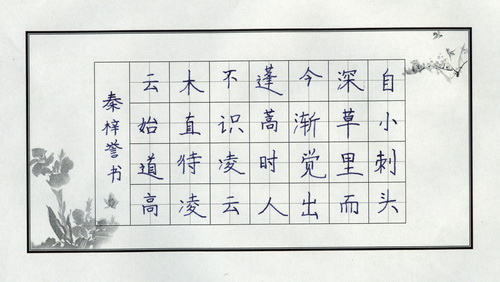 自小刺头
深草里而
今渐觉出
蓬蒿时人
不识凌云
木直待凌
云始道高
秦梓誉书